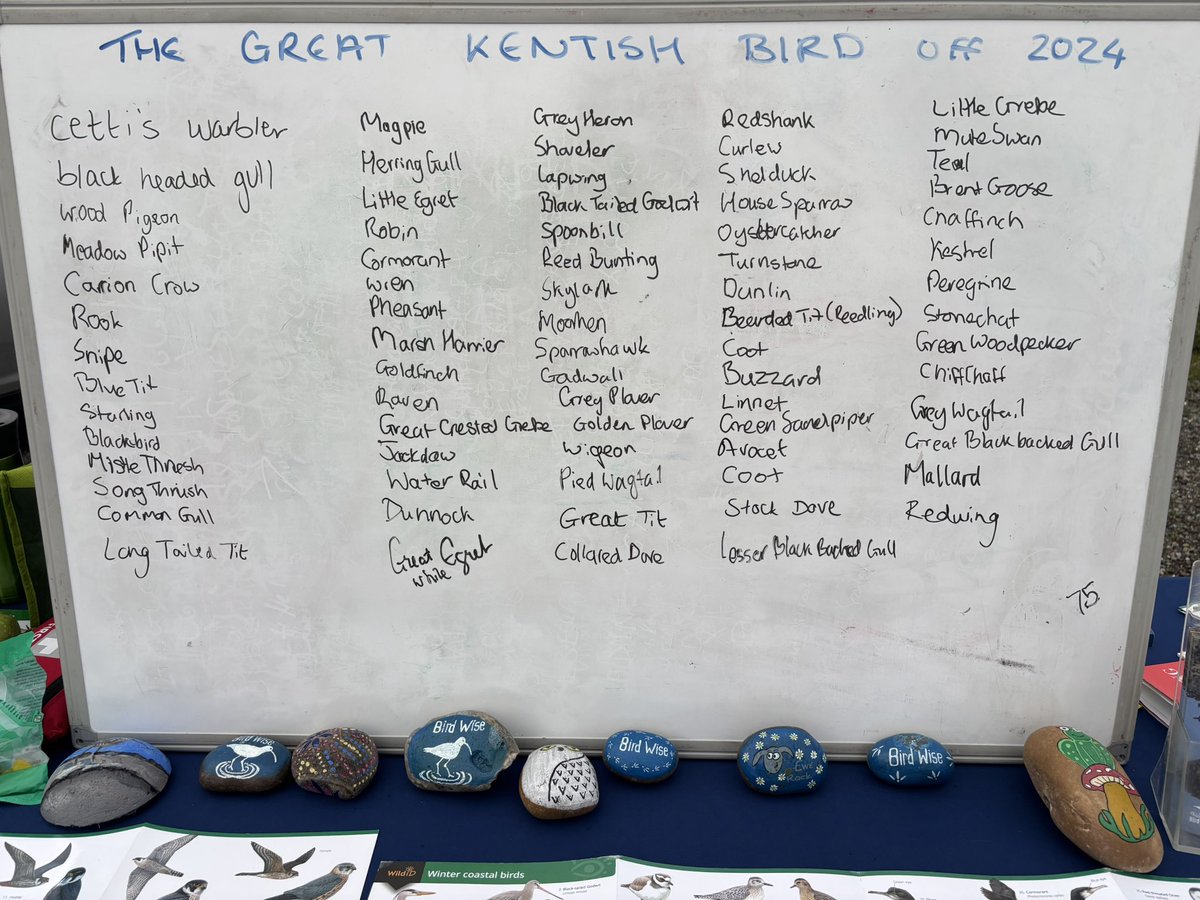 THE GREAT KENTISH BIRD OFF 2024
Cetti's warbler
black headed gull
Wood Pigeon
Meadow Pipit
Carrion Crow
Rook
Snipe
Blue Tit
Starling
Blackbird
Mistle Thrush
Song Thrush
Common Gull
Long Tailed Tit
Magpie
Herring Gull
Little Egret
Robin
Cormorant
Wren
Pheasant
Marsh Harrier
Goldfinch
Raven
Great Crested Grebe
Jackdaw
Water Rail
Dunnock
Great Egret
white
Grey Heron
Shoveler
Lapwing
Black Tailed Godwit
Spoonbill
Reed Bunting
Skylark
Moorhen
Sparrowhawk
Gadwall
Grey Plover
Golden Plover
Wigeon
Pied Wagtail
Great Tit
Collared Dove
Redshank
Curlew
Shelduck
House Sparrow
Oystercatcher
Turnstone
Dunlin
Bearded Tit (Reedling)
Coot
Buzzard
Linnet
Green Sandpiper
Avocet
Coot
Stock Dove
Lesser Black Backed Gull
Little Grebe
Mute Swan
Teal
Brent Goose
Chaffinch
Kestrel
Peregrine
Stonechat
Green Woodpecker
Chiffchaff
Grey Wagtail
Great Black backed Gull
Mallard
Redwing
75
Bird Wise
Bird Wise
Bird Wise
Ewe
Rock
Bird Wise
WildID
Winter coastal birds